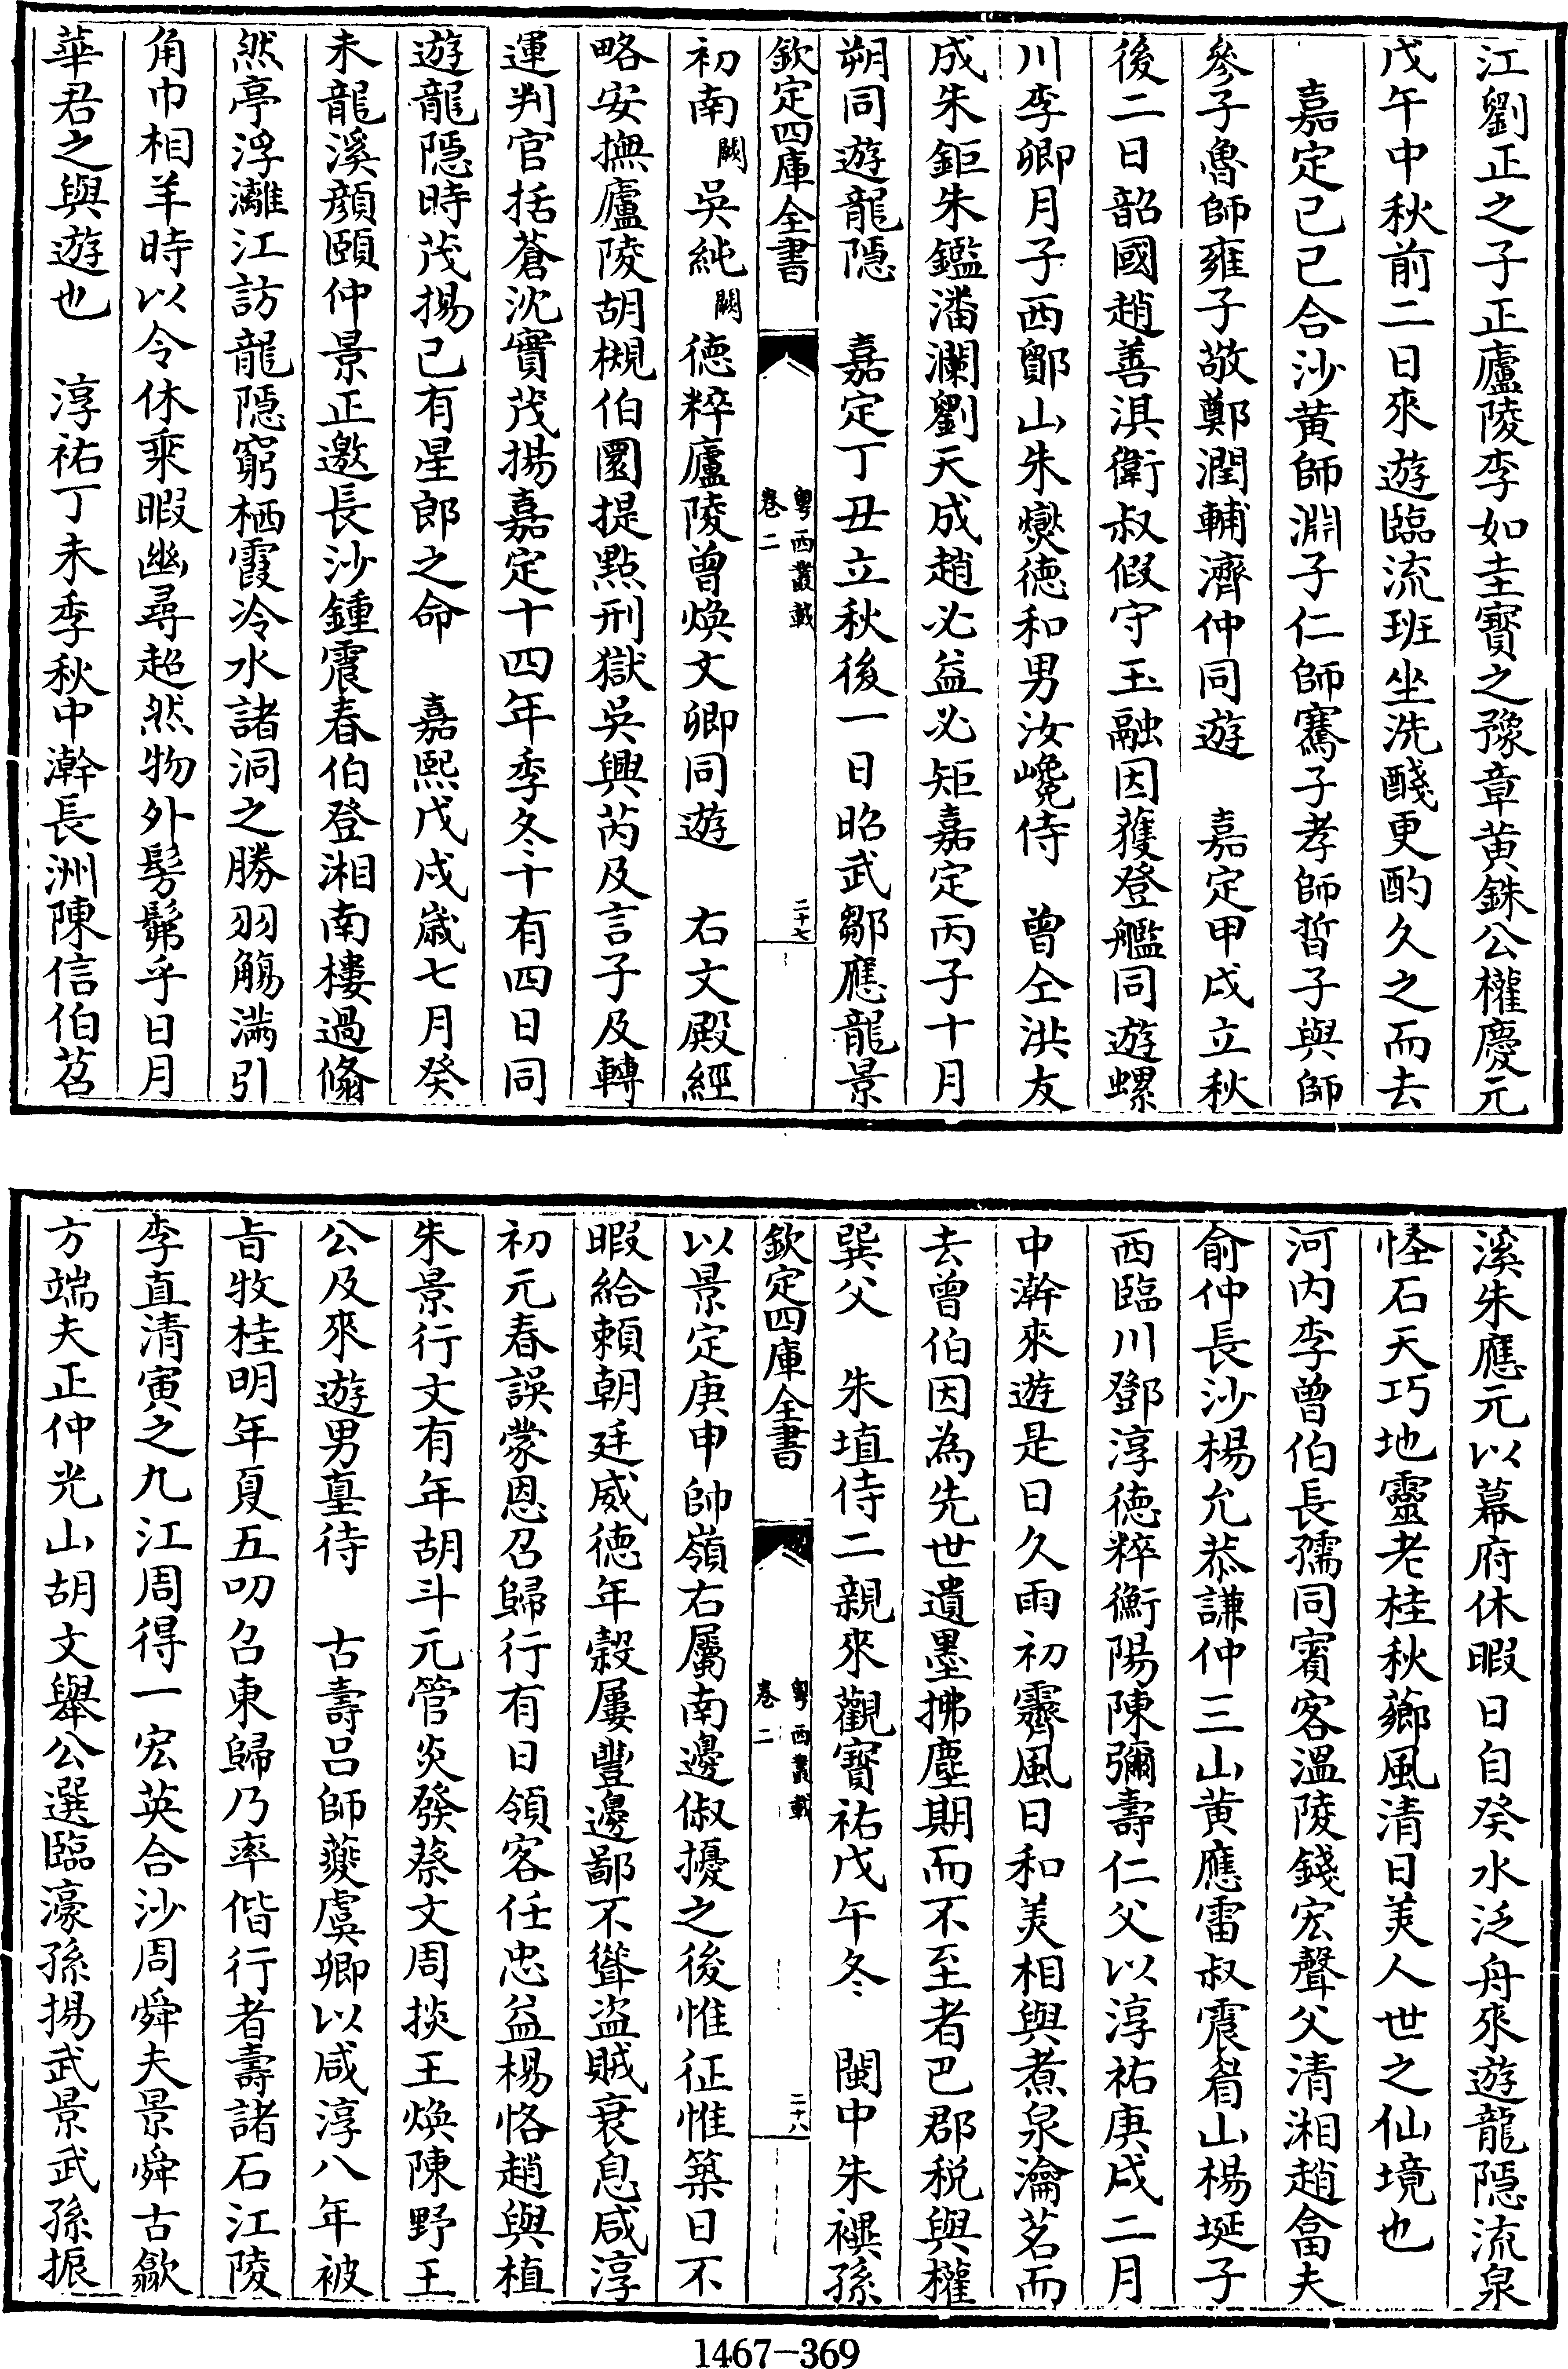 江劉正之子正廬陵李如圭寳之豫章黄銖公權慶元
戊午中秋前二日來遊臨流班坐洗醆更酌久之而去
嘉定己巳合沙黄師淵子仁師騫子孝師晳子與師
參子魯師雍子敬鄭潤輔濟仲同遊　嘉定甲戌立秋
後二日韶國趙善淇衛叔假守玉融因獲登艦同遊螺
川李卿月子西鄮山朱爕徳和男汝巉侍　曾仝洪友
成朱鉅朱鑑潘瀾劉天成趙必益必矩嘉定丙子十月
朔同遊龍隠　嘉定丁丑立秋後一日昭武鄒應龍景
欽定四庫全書　粤西叢載　卷二　二十七
初南闕吳純闕徳粹廬陵曾煥文卿同遊　右文殿經
略安撫廬陵胡槻伯圜提點刑獄吳興芮及言子及轉
運判官括蒼沈實茂揚嘉定十四年季冬十有四日同
遊龍隠時茂揚已有星郎之命　嘉熙戊戌歲七月癸
未龍溪顔頤仲景正邀長沙鍾震春伯登湘南樓過翛
然亭浮灕江訪龍隠窮栖霞冷水諸洞之勝羽觴滿引
角巾相羊時以令休乘暇幽尋超然物外髣髴乎日月
華君之與遊也　淳祐丁未季秋中澣長洲陳信伯苕
溪朱應元以幕府休暇日自癸水泛舟來遊龍隠流泉
怪石天巧地靈老桂秋薌風清日美人世之仙境也
河内李曾伯長孺同賓客温陵錢宏聲父清湘趙畬夫
俞仲長沙楊允恭謙仲三山黄應雷叔震眉山楊埏子
西臨川鄧淳徳粹衡陽陳彌壽仁父以淳祐庚戌二月
中澣來遊是日久雨初霽風日和美相與煮泉瀹茗而
去曾伯因為先世遺墨拂塵期而不至者巴郡税與權
巽父　朱埴侍二親來觀寳祐戊午冬　閩中朱禩孫
欽定四庫全書　粤西叢載　卷二　二十八
以景定庚申帥嶺右屬南邊俶擾之後惟征惟築日不
暇給頼朝廷威徳年榖屢豐邊鄙不聳盗賊衰息咸淳
初元春誤蒙恩召歸行有日領客任忠益楊恪趙與植
朱景行文有年胡斗元管炎發蔡文周掞王煥陳野王
公及來遊男㙓待　古壽吕師夔虞卿以咸淳八年被
㫖牧桂明年夏五叨召東歸乃率偕行者壽諸石江陵
李直清寅之九江周得一宏英合沙周舜夫景舜古歙
方端夫正仲光山胡文舉公選臨濠孫揚武景武孫振
1467-369